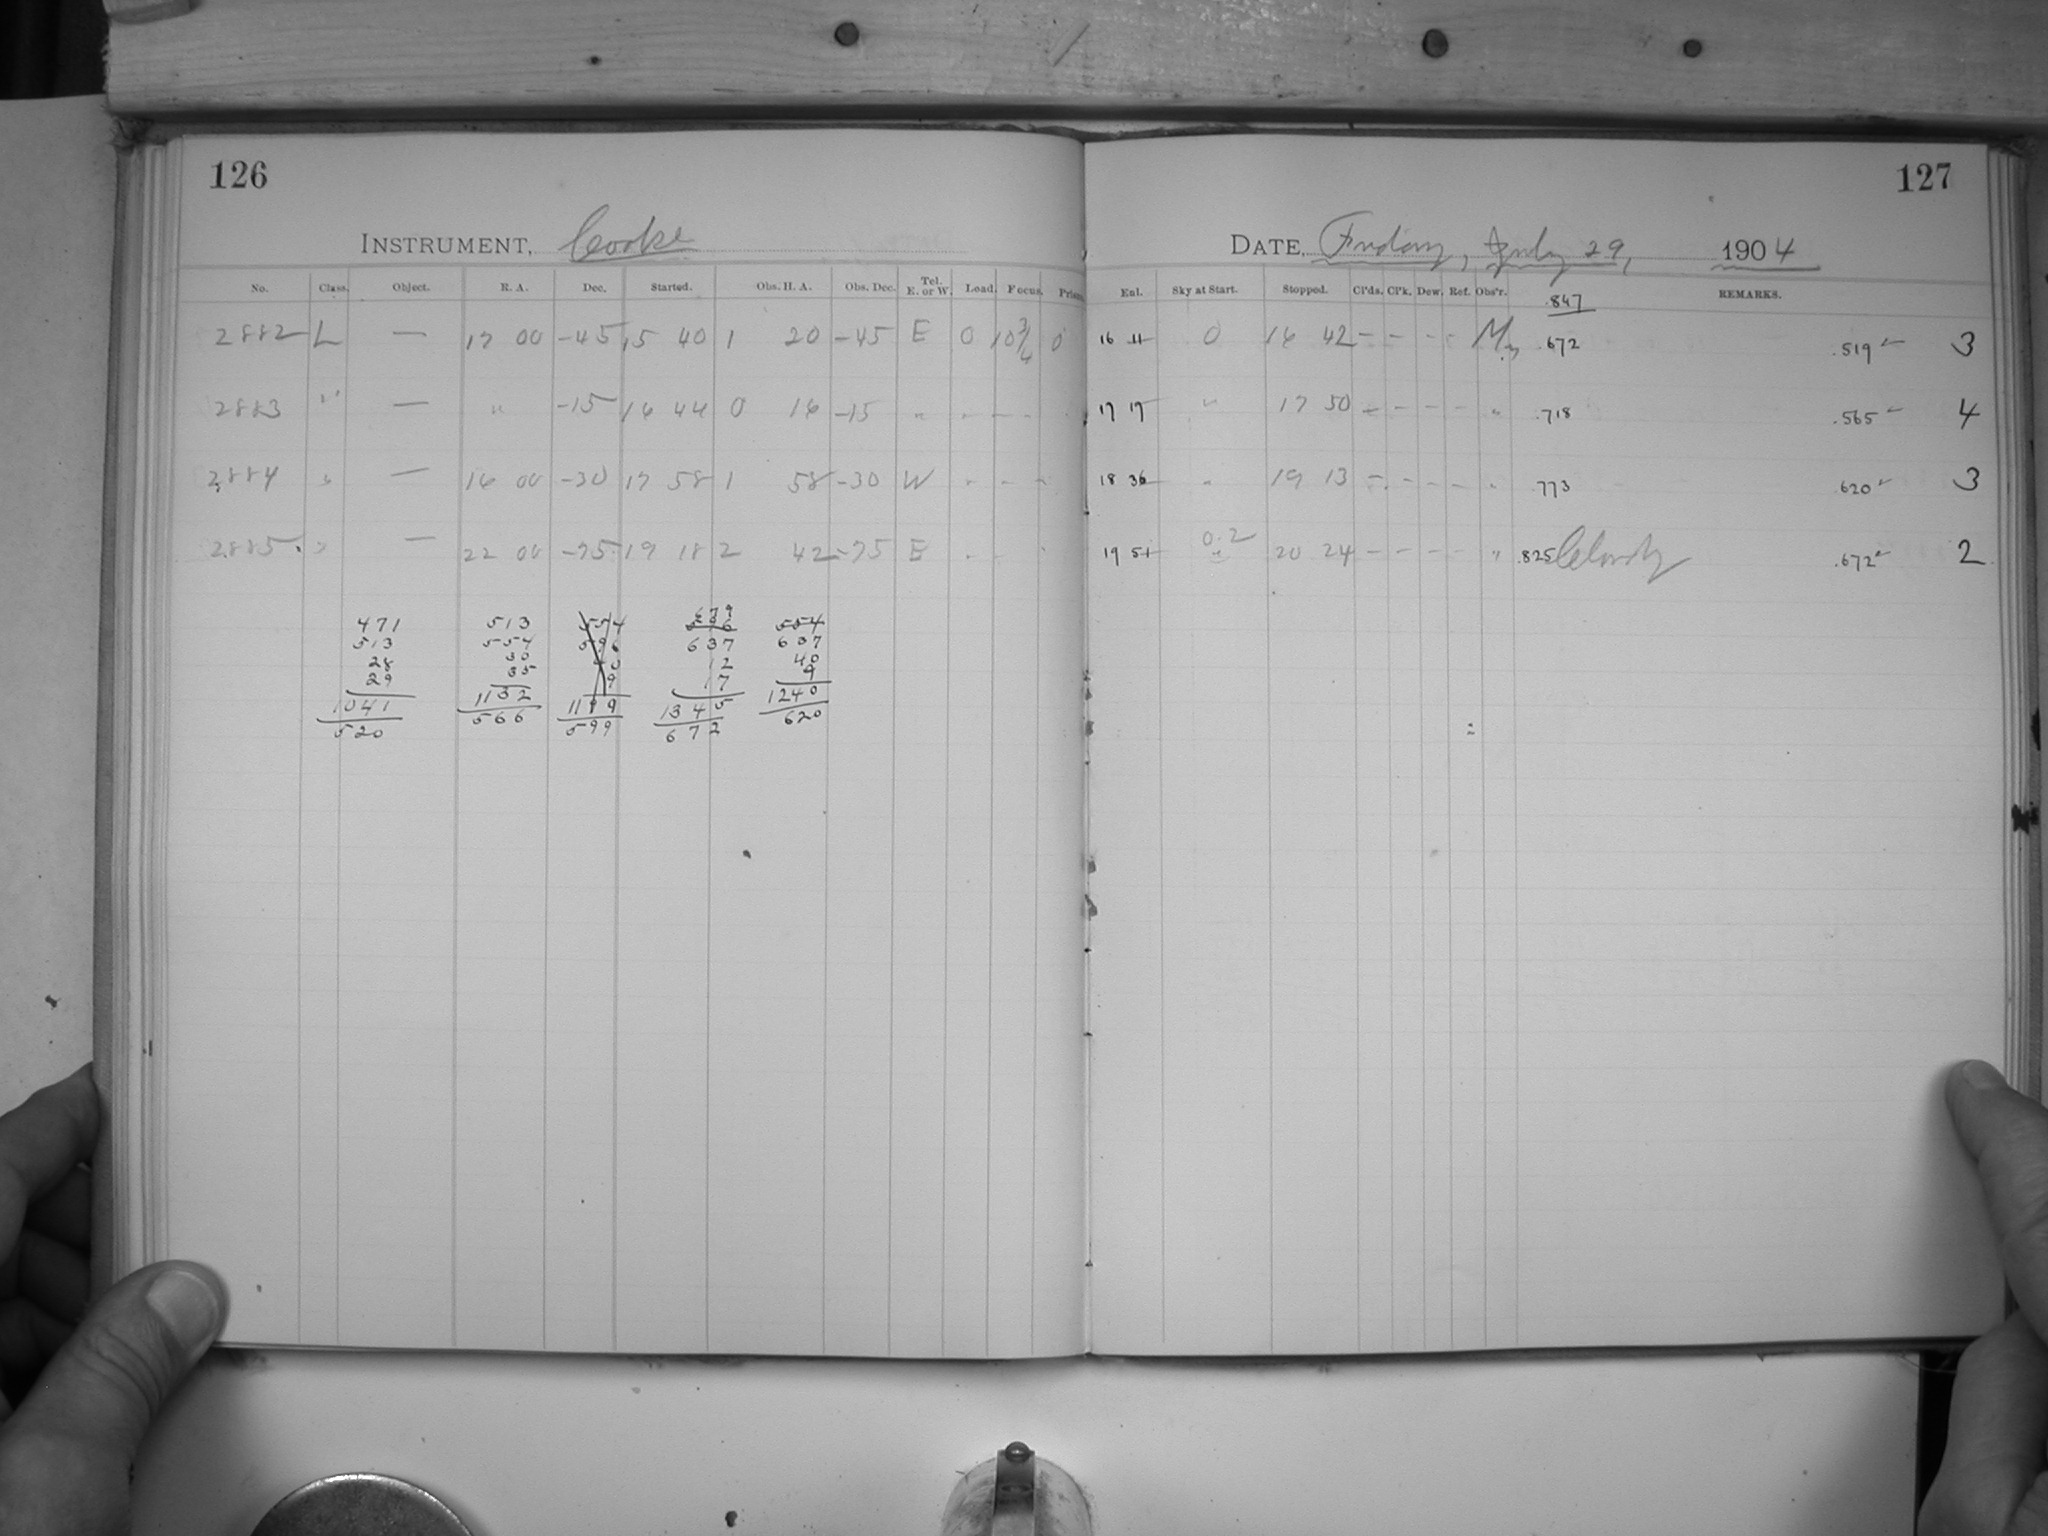 126
127
INSTRUMENT, Cooke
DATE, Friday, July 29, 1904
No. Class. Object. R. A. Dec. Started. Obs. H. A. Obs. Dec. Tel. E. or W. Load. Focus. Prism. Enl. Sky at Start. Stopped. Cl'ds. Cl'k. Dew. Ref. Obs'r. REMARKS.
.847
2882 L — 17 00 -45 15 40 1 20 -45 E 0 10 3/4 0 16 11 0 16 42 - - - - .672 .519 3
2883 " — " -15 16 44 0 16 -15 " - - - 17 17 " 17 50 - - - - " .718 .565 4
2884 " — 16 00 -30 17 58 1 58 -30 W " - - 18 36 " 19 13 - - - - " .773 .620 3
2885 " — 22 00 -75 19 18 2 42 -75 E 19 51 0.2 20 24 - - - - " .825 Cloudy .672 2
471 513 554 679 554
513 554 596 637 637
28 30 12 40
29 35 9 17 9
1041 1132 1199 1345 1240
520 566 599 672 620